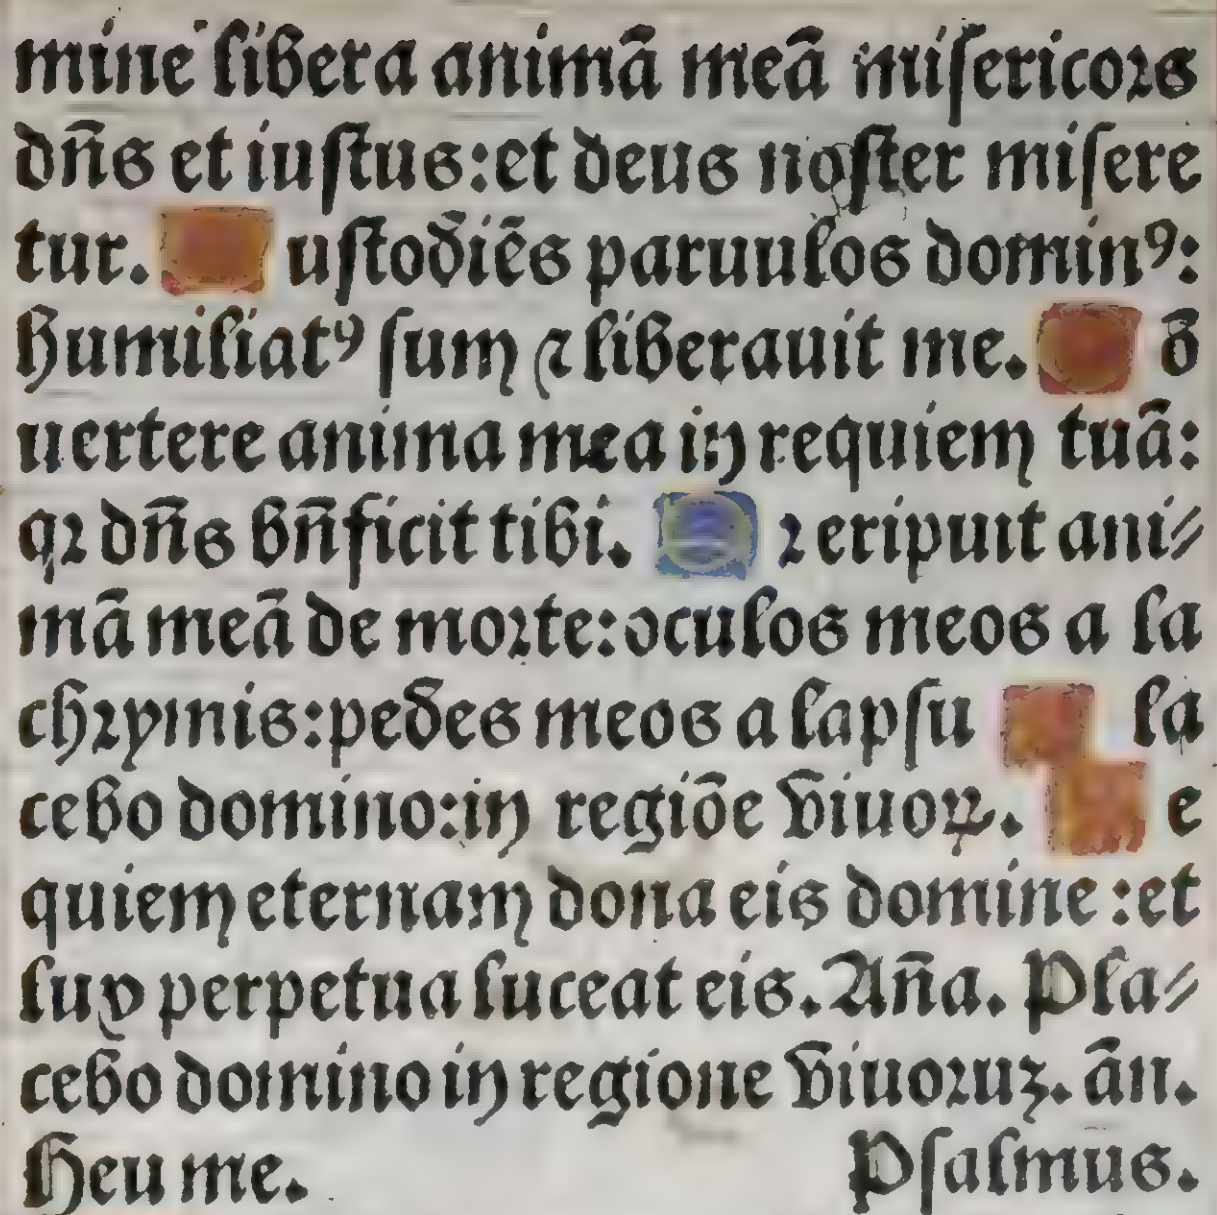 mine libera animā meā misericors
dn̄s et iustus: et deus noster misere
tur. ustodiēs paruulos dominꝰ:
humiliatꝰ sum ⁊ liberauit me. ō
uertere anima mea in requiem tuā:
qꝛ dn̄s bn̄ficit tibi. ꝛ eripuit ani⸗
mā meā de morte: oculos meos a la
chrymis: pedes meos a lapsu la
cebo domino: in regiōe viuoꝝ. e
quiem eternam dona eis domine: et
lux perpetua luceat eis. An̄a. Pla⸗
cebo domino in regione viuoruꝫ. ān.
Heu me. Psalmus.